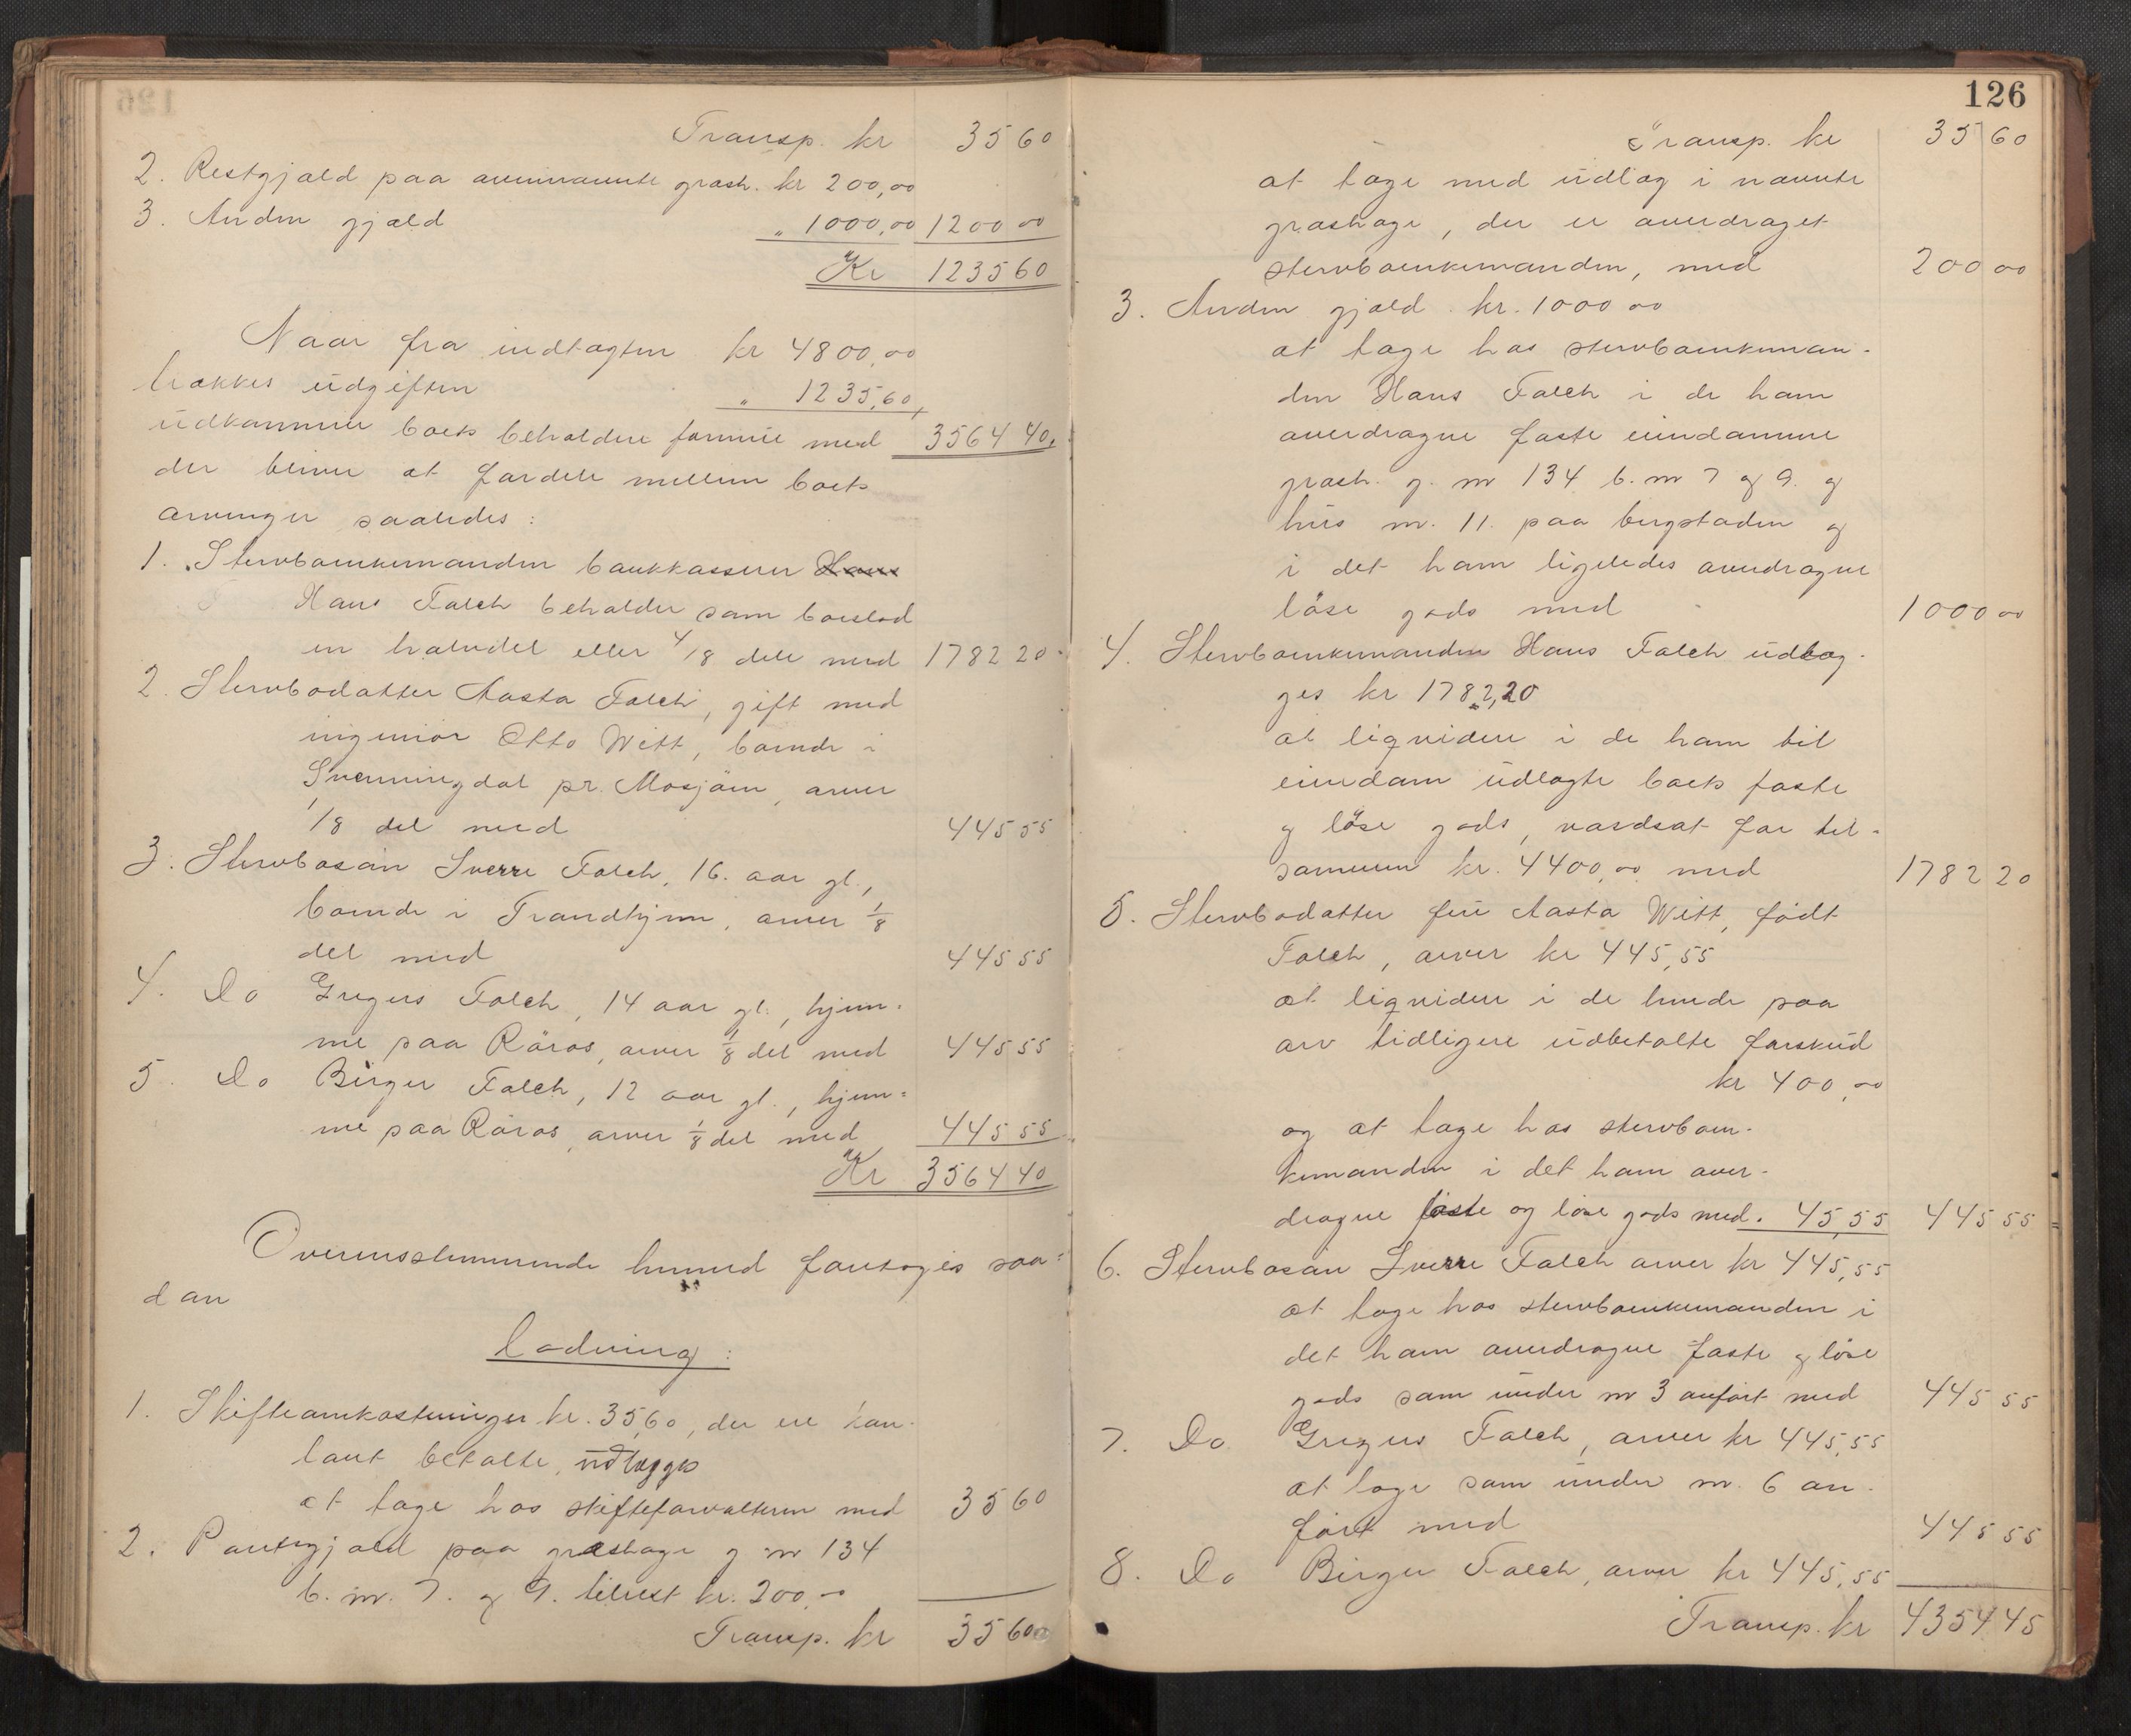 Transp. kr 35 60
2. Restgjæld paa ovennævnte græsh. kr 200,00
3. Anden gjæld „ 1000,00 1200 00
Kr 1235 60
Naar fra indtægten kr 4800,00
trækkes udgiften „ 1235,60,
udkommer boets beholdne formue med 3564 40,
der bliver at fordele mellem boets
arvinger saaledes:
1. Stervboenkemanden bankkasserer Hans
Hans Falch beholder som boeslod
en halvdel eller 4/8 dele med 1782 20
2. Stervbodatter Aasta Falch, gift med
ingeniør Otto Witt, boende i
Svenningdal pr. Mosjøen, arver
1/8 del med 445 55
3. Stervbosøn Sverre Falch, 16. aar gl.,
boende i Trondhjem, arver 1/8
del med 445 55
4. Do Gregers Falch, 14 aar gl., hjem-
me paa Røros, arver 1/8 del med 445 55
5. Do Birger Falch, 12 aar gl., hjem=
me paa Røros, arver 1/8 del med 445 55
Kr 3564 40
Overensstemmende hermed foretoges saa=
dan
Lodning:
1. Skifteomkostninger kr. 35,60, der ere kon-
tant betalte, udlægges
at tage hos skifteforvalteren med 35 60
2. Pantegjæld paa græshage g nr 134
b. nr. 7. og 9. tilrest kr. 200,00
Transp. kr 35 60
126
Transp. kr 35 60
at tage med udlæg i nævnte
græshage, der er overdraget
stervboenkemanden, med 200 00
3. Anden gjæld kr. 1000 00
at tage hos stervboenkeman-
den Hans Falch i de ham
overdragne faste eiendomme
græsh. g. nr 134 b. nr 7 og 9. og
hus nr. 11. paa bergstaden og
i det ham ligeledes overdragne
løse gods med 1000 00
4. Stervboenkemanden Hans Falch udlæg-
ges kr 1782,20
at liqvidere i de ham til
eiendom udlagte boets faste
og løse gods, værdsat for til-
sammen kr. 4400,00 med 1782 20
5. Stervbodatter frue Aasta Witt, født
Falch, arver kr 445,55
at liqvidere i de hende paa
arv tidligere udbetalte forskud
kr 400,00
og at tage hos stervboen-
kemanden i det ham over-
dragne faste og løse gods med. 45,55 445 55
6. Stervbosøn Sverre Falch arver kr 445,55
at tage hos stervboenkemanden i
det ham overdragne faste og løse
gods som under nr 3 anført med 445 55
7. Do Gregers Falch, arver kr 445,55
at tage som under nr. 6 an-
ført med 445 55
8. Do Birger Falch, arver kr 445,55
Transp. kr 4354 45